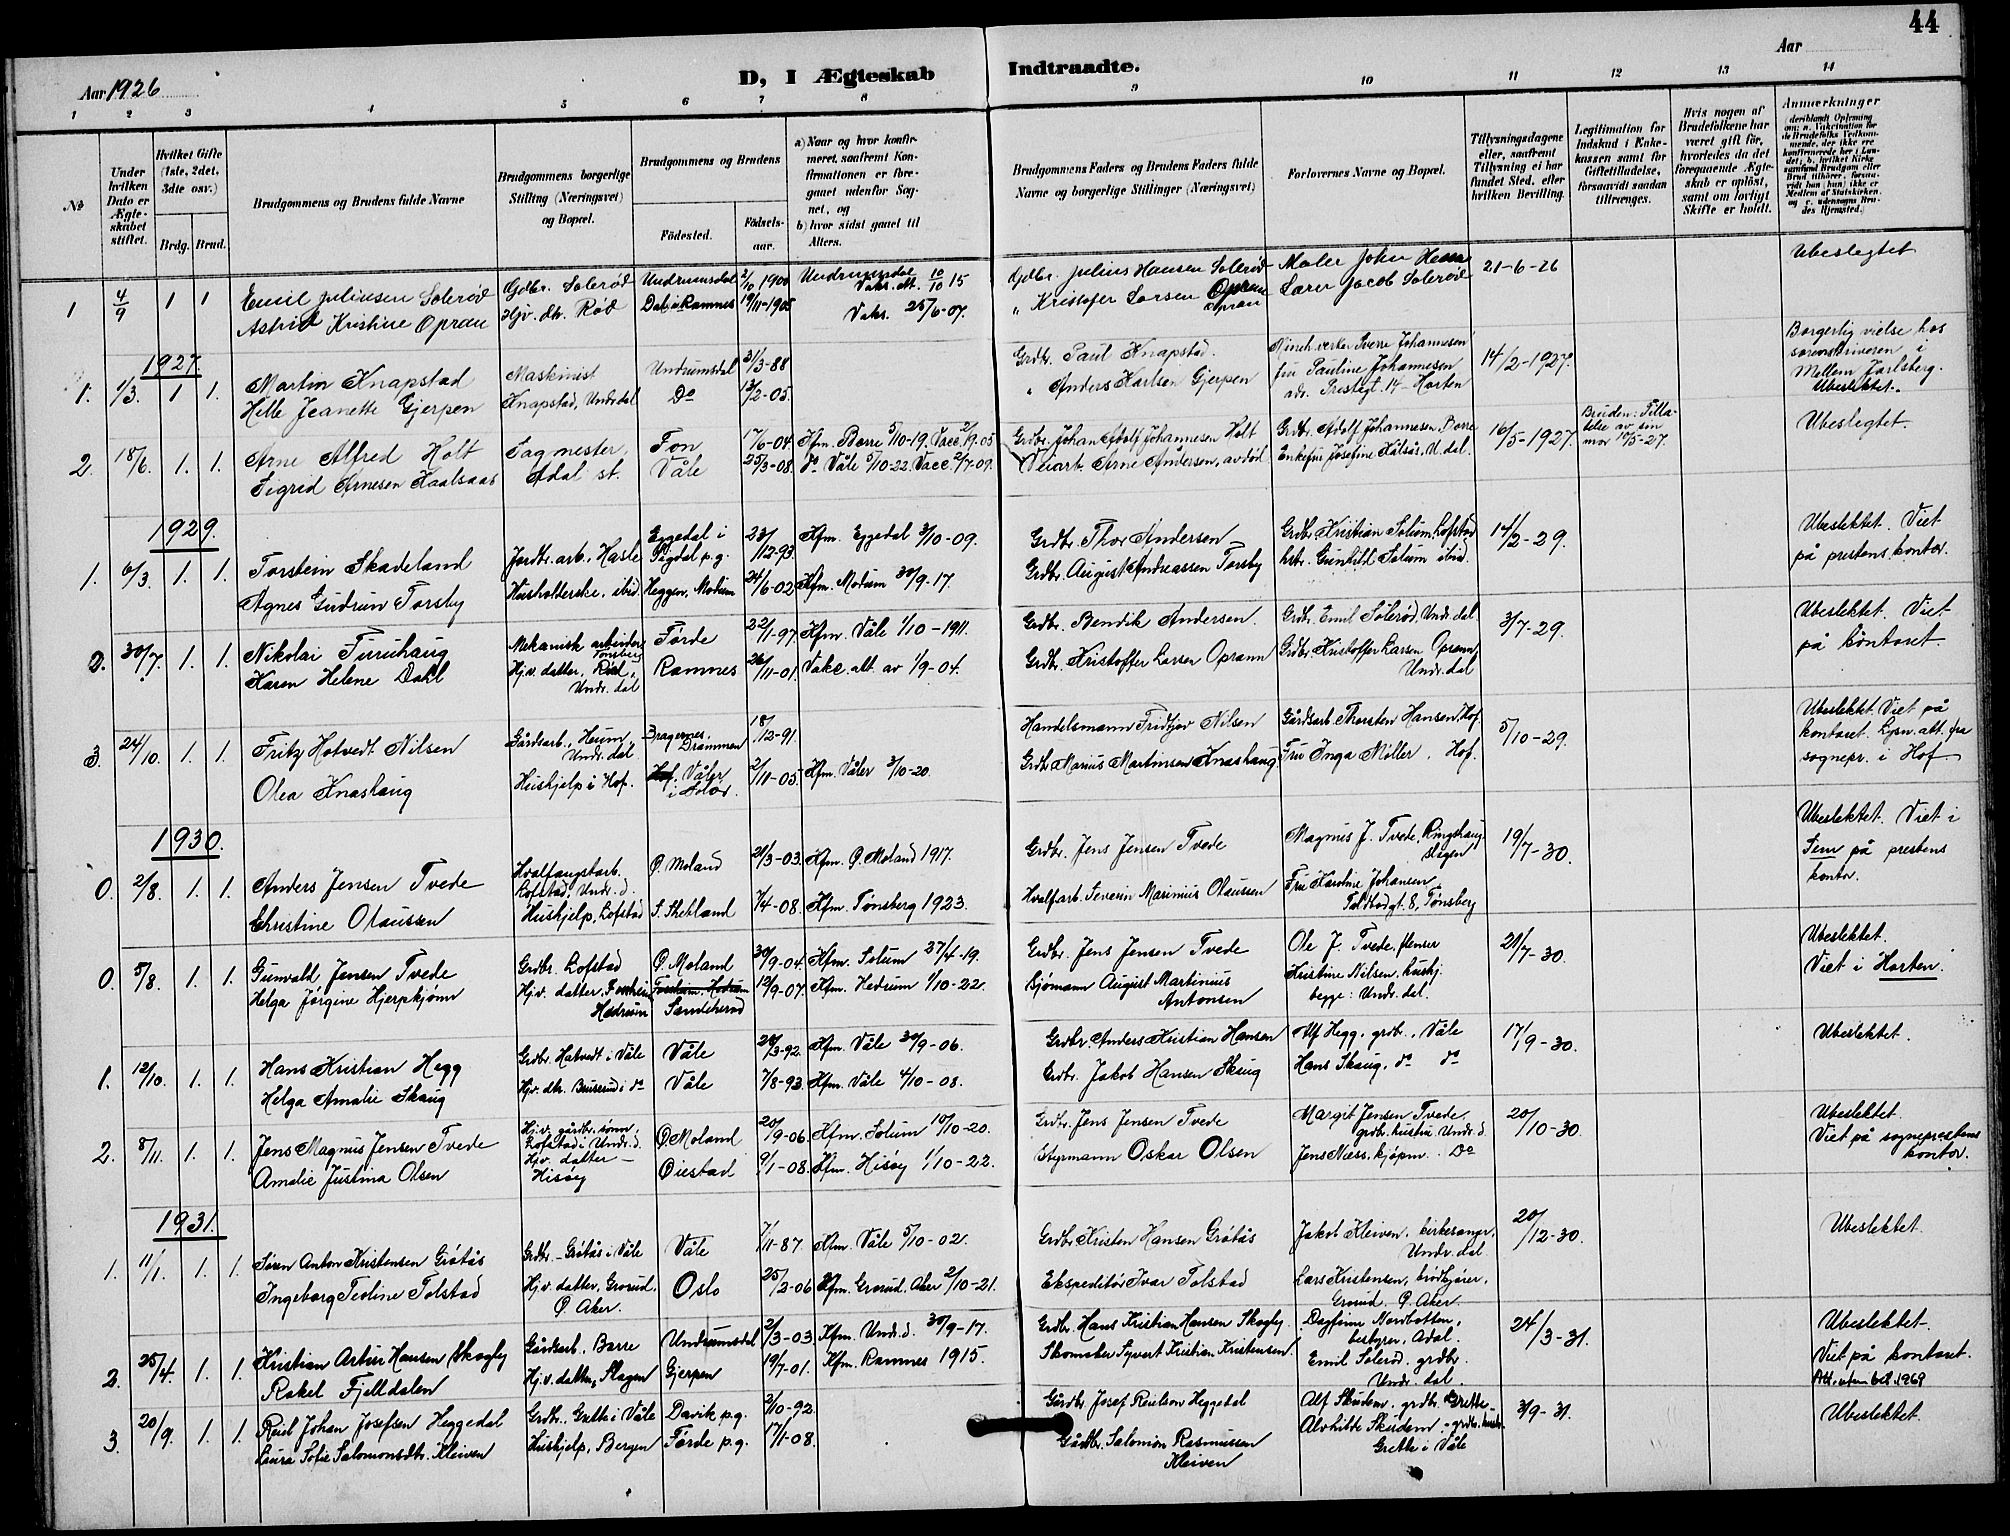 44
Aar 1926
D, I Ægteskab Indtraadte.
Aar
1 2 3 4 5 6 7 8 9 10 11 12 13 14
№
Under hvilken Dato er Ægteskabet stiftet.
Hvilket Gifte (1ste, 2det, 3dte osv.)
Brdg. Brud.
Brudgommens og Brudens fulde Navne
Brudgommens borgerlige Stilling (Næringsvei) og Bopæl.
Brudgommens og Brudens
Fødested.
Fødselsaar.
a) Naar og hvor konfirmeret, saafremt Konfirmationen er foregaaet udenfor Sognet, og
b) hvor sidst gaaet til Alters.
Brudgommens Faders og Brudens Faders fulde Navne og borgerlige Stillinger (Næringsvei)
Forlovernes Navne og Bopæl.
Tillysningsdagene eller, saafremt Tillysning ei har fundet Sted, efter hvilken Bevilling.
Legitimation for Indskud i Enkekassen samt for Giftetilladelse, forsaavidt saadan tiltrænges.
Hvis nogen af Brudefolkene har været gift før, hvorledes da det foregaaende Ægteskab er opløst, samt om lovligt Skifte er holdt.
Anmærkninger
(deriblandt Oplysning om: a. Vakcination for de Brudefolks Vedkommende, der ikke ere konfirmerede her i Landet; b. hvilket Kirkesamfund Brudgom eller Brud tilhører, forsaavidt han (hun) ikke er Medlem af Statskirken, og c. udensogns Brudes Hjemsted.)
1 4/9 1 1 Emil Juliusen Solerød Gdbr. Solerød Undrumsdal 2/10 1900 Undrumsdal 10/10 15 Gdbr. Julius Hansen Solerød Maler John Hem 21-6-26 Ubeslegtet
Astrid Kristine Oprau Hjv. dtr. Rød Dal i Ramnes 19/11-1905 Vaks. 25/6-07. " Kristofer Larsen Oprau Lærer Jacob Solerød
1927.
1. 1/3. 1 1. Martin Knapstad Maskinist Undrumsdal 31/3-88 Grdbr. Paul Knapstad. Sverre Johannesen 14/2-1927. Borgerlig vielse hos
Hille Jeanette Gjerpen Knapstad, Undr.dal Do 13/2-05. " Anders Karlsen Gjerpen fru Pauline Johannesen sorenskriveren i
adr. Prestegt. 14 - Horten Mellem Jarlsberg.
Ubeslektet.
2. 18/6. 1. 1. Arne Alfred Holt Sagmester, Fon 7/6-04. Kfm. Borre 5/10-19. Vacc. 2/9.05 Grdbr. Johan Adolf Johannesen Holt Grdbr. Adolf Johannesen, Borre 16/5-1927. Bruden: Tilladelse av sin mor 10/5-27. Ubeslegtet.
Sigrid Arnesen Kaalsaas Adal st. Våle 25/3-08. do Våle 5/10-22. Vacc. 2/7-09. Veiarb. Arne Andersen, avdød Enkefru Josefine Kålsås, U.dal.
1929.
1. 6/3. 1. 1. Torstein Skadeland Jordbr. arb. Hasle Eggedal i Sigdal p.g. 23/12-93. Kfm. Eggedal 3/10-09. Grdbr. Thor Andersen Grdbr. Kristian Solum, Lofstad 14/2-29. Ubeslektet. Viet
Agnes Gudrun Forsby Husholderske, ibid. Heggen, Modum 24/6-02 Kfm. Modum 30/9-17. Grdbr. August Andreassen Forsby hstr. Gunhild Solum ibid. på prestens kontor.
2. 30/7. 1. 1. Nikolai Furuhaug Mekanisk arbeider Tønsberg Førde 22/1-97. Kfm. Våle 1/10-1911. Grdbr. Bendik Andersen. Grdbr. Emil Solerød, Undr.dal 3/7-29. Ubeslektet. Viet
Karen Helene Dahl Hjv. datter, Rød, Undr.dal Ramnes 26/11-01. Vakc. att. av 1/9-04. Grdbr. Kristoffer Larsen Oprann Grdbr. Kristoffer Larsen Oprann, Undr.dal på kontoret.
3. 24/10. 1. 1. Fritz Hotvedt Nilsen Gårdsarb., Heum, Undr.dal Bragernes, Drammen 18/12-91. Handelsmann Fridtjov Nilsen Gårdsarb. Thorsten Hansen, Hof 5/10-29. Ubeslektet. Viet på
Olea Knashaug Hushjelp i Hof. Hof. Våler i Solør. 2/11-05 Kfm. Våler 3/10-20. Grdbr. Marius Martinsen Knashaug Fru Inga Møller. Hof. kontoret. Lysn. att. fra
sognepr. i Hof
1930.
0. 2/8. 1. 1. Anders Jensen Tvede Hvalfangstarb. Lofstad, Undr.d. Ø. Moland 21/3-03. Kfm. Ø. Moland 1917. Grdbr. Jens Jensen Tvede Magnus J. Tvede, Ringshaug, Slagen 19/7-30. Ubeslektet. Viet i
Christine Olaussen Hushjelp, Lofstad S. Shetland 7/4-08. Kfm. Tønsberg 1923. Hvalfarb. Severin Marinius Olaussen Fru Karoline Johansen, Tollbodgt. 8, Tønsberg Sem på prestens
kontor.
0. 5/8. 1. 1. Gunvald Jensen Tvede Grdbr. Lofstad Ø. Moland 30/9-04. Kfm. Solum 27/4-19. Grdbr. Jens Jensen Tvede Ole J. Tvede, 21/7-30. Ubeslektet.
Helga Jørgine Hjerpkjønn Hjv. datter, Hedrum Sandeherad 12/9-07. Kfm. Hedrum 1/10-22. Sjømann August Martinius Antonsen Kristine Nilsen, hushj. Viet i Horten.
begge: Undr.dal.
1. 12/10. 1. 1. Hans Kristian Hegg Grdbr. Hotvedt i Våle Våle 28/3-92. Kfm. Våle 30/9-06. Grdbr. Anders Kristian Hansen Alf Hegg, grdbr., Våle 17/9-30. Ubeslektet.
Helga Amalie Skaug Hjv. dtr. Bruserud i do Våle 7/8-93. Kfm. Våle 4/10-08. Grdbr. Jakob Hansen Skaug Hans Skaug, do do
2. 8/11. 1. 1. Jens Magnus Jensen Tvede Hjv. gårdbr. sønn, Lofstad i Undr.d. Ø Moland 20/9-06. Kfm. Solum 10/10-20. Grdbr. Jens Jensen Tvede Margit Jensen Tvede, grdbr. hustru Undr.d. 20/10-30. Ubeslektet.
Amalie Justina Olsen Hjv. datter - Hisøy Øiestad 9/1-08. Kfm. Hisøy 1/10-22. Styrmann Oskar Olsen Jens Næss, kjøpm. Do Viet på sogneprestens kontor.
1931.
1. 11/1. 1. 1. Søren Anton Kristensen Grøtås Grdbr. - Grøtås i Våle Våle 7/11-87. Kfm. Våle 5/10-02. Grdbr. Kristen Hansen Grøtås Jakob Kleiven, kirkesanger, Undr.dal 20/12-30. Ubeslektet.
Ingeborg Teoline Tolstad Hj.v. datter, Grorud, Ø Aker. Oslo 25/2-06 Kfm. Grorud, Aker 2/10-21. Ekspeditør Ivar Tolstad Lars Kristensen, brødkjører, Grorud, Ø. Aker.
2. 25/4. 1. 1. Kristian Artur Hansen Skogby Gårdsarb. Borre Undrumsdal 2/3-03. Kfm. Undr.d. 30/9-17. Grdbr. Hans Kristian Hansen Skogby Dagfinn Nordbotten, bestyrer, Adal. 24/3-31. Ubeslektet.
Rakel Fjelldalen Hj.v. datter, Slagen Gjerpen 19/7-01. Kfm. Ramnes 1915. Skomaker Syvert Kristian Kristensen. Emil Solerød, grdbr. Undr.dal. Viet på kontoret.
1969
3. 20/9. 1. 1. Reiel Johan Josefsen Heggedal Grdbr. Grette i Våle Davik p.g. 2/10-92. Gårdbr. Josef Reielson Heggedal Alf Skudem, grdbr. Grette 3/9-31. Ubeslektet.
Laura Sofie Salomonsdtr. Kleiven Hushjelp, Bergen Førde p.g. 17/1-08. Gårdbr. Salomon Rasmussen Kleiven Alvhilde Skudem, grdbr. hustr. Grette i Våle